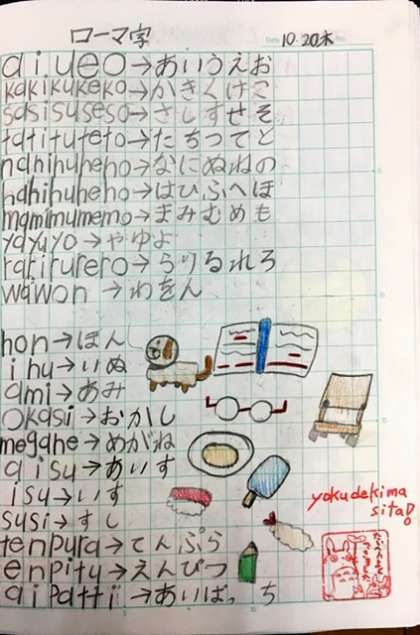 ローマ字
Date 10.20木
aiueo→あいうえお
kakikukeko→かきくけこ
sasisuseso→さしすせそ
tatituteto→たちつてと
naninuneno→なにぬねの
hahihuheho→はひふへほ
mamimumemo→まみむめも
yayuyo→やゆよ
rarirurero→らりるれろ
wawon→わをん
hon→ほん
inu→いぬ
ami→あみ
okasi→おかし
megane→めがね
aisu→あいす
isu→いす
susi→すし
yokudekima
sita!
tenpura→てんぷら
enpitu→えんぴつ
aipatti→あいぱっち